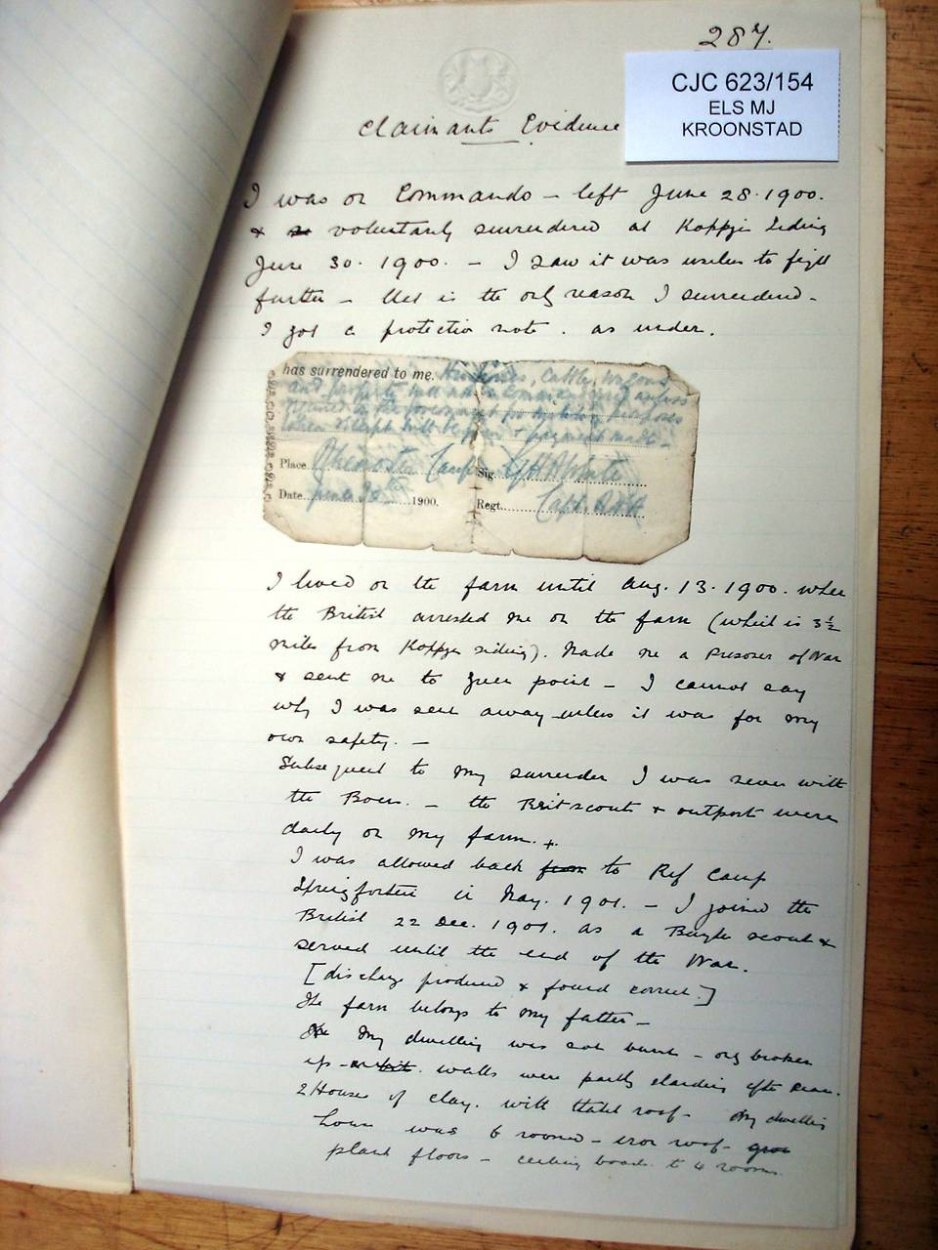 287.
CJC 623/154
ELS MJ
KROONSTAD
Claimants Evidence
I was on Commando – left June 28. 1900.
& voluntarily surrendered at Koppjes Siding
June 30. 1900. – I saw it was useless to fight
further – that is the only reason I surrendered –
I got a protection note. as under.
has surrendered to me. His horses, cattle, waggons
and property
required by the Government for military purposes
when receipt will be given & payment made –
Place Rhenoster Camp Sig. White
Date June 30th 1900. Regt. Capt. RHA
I lived on the farm until Aug. 13. 1900. when
the British arrested me on the farm (which is 3½
miles from Koppjes siding). Made me a Prisoner of War
& sent me to Green point – I cannot say
why I was sent away unless it was for my
own safety. –
Subsequent to my surrender I was never with
the Boers. – the Brit scouts & outpost were
daily on my farm. +
I was allowed back from to Ref Camp
Springfontein in May. 1901. – I joined the
British 22 Dec. 1901. as a scout &
served until the end of the War.
[discharge produced & found correct.]
The farm belongs to my father –
My dwelling was not burnt – only broken
up – walls were partly standing after Peace.
2 Houses of clay. with thatch roof – My dwelling
house was 6 roomed – iron roof –
plank floors – ceiling boards to 4 rooms